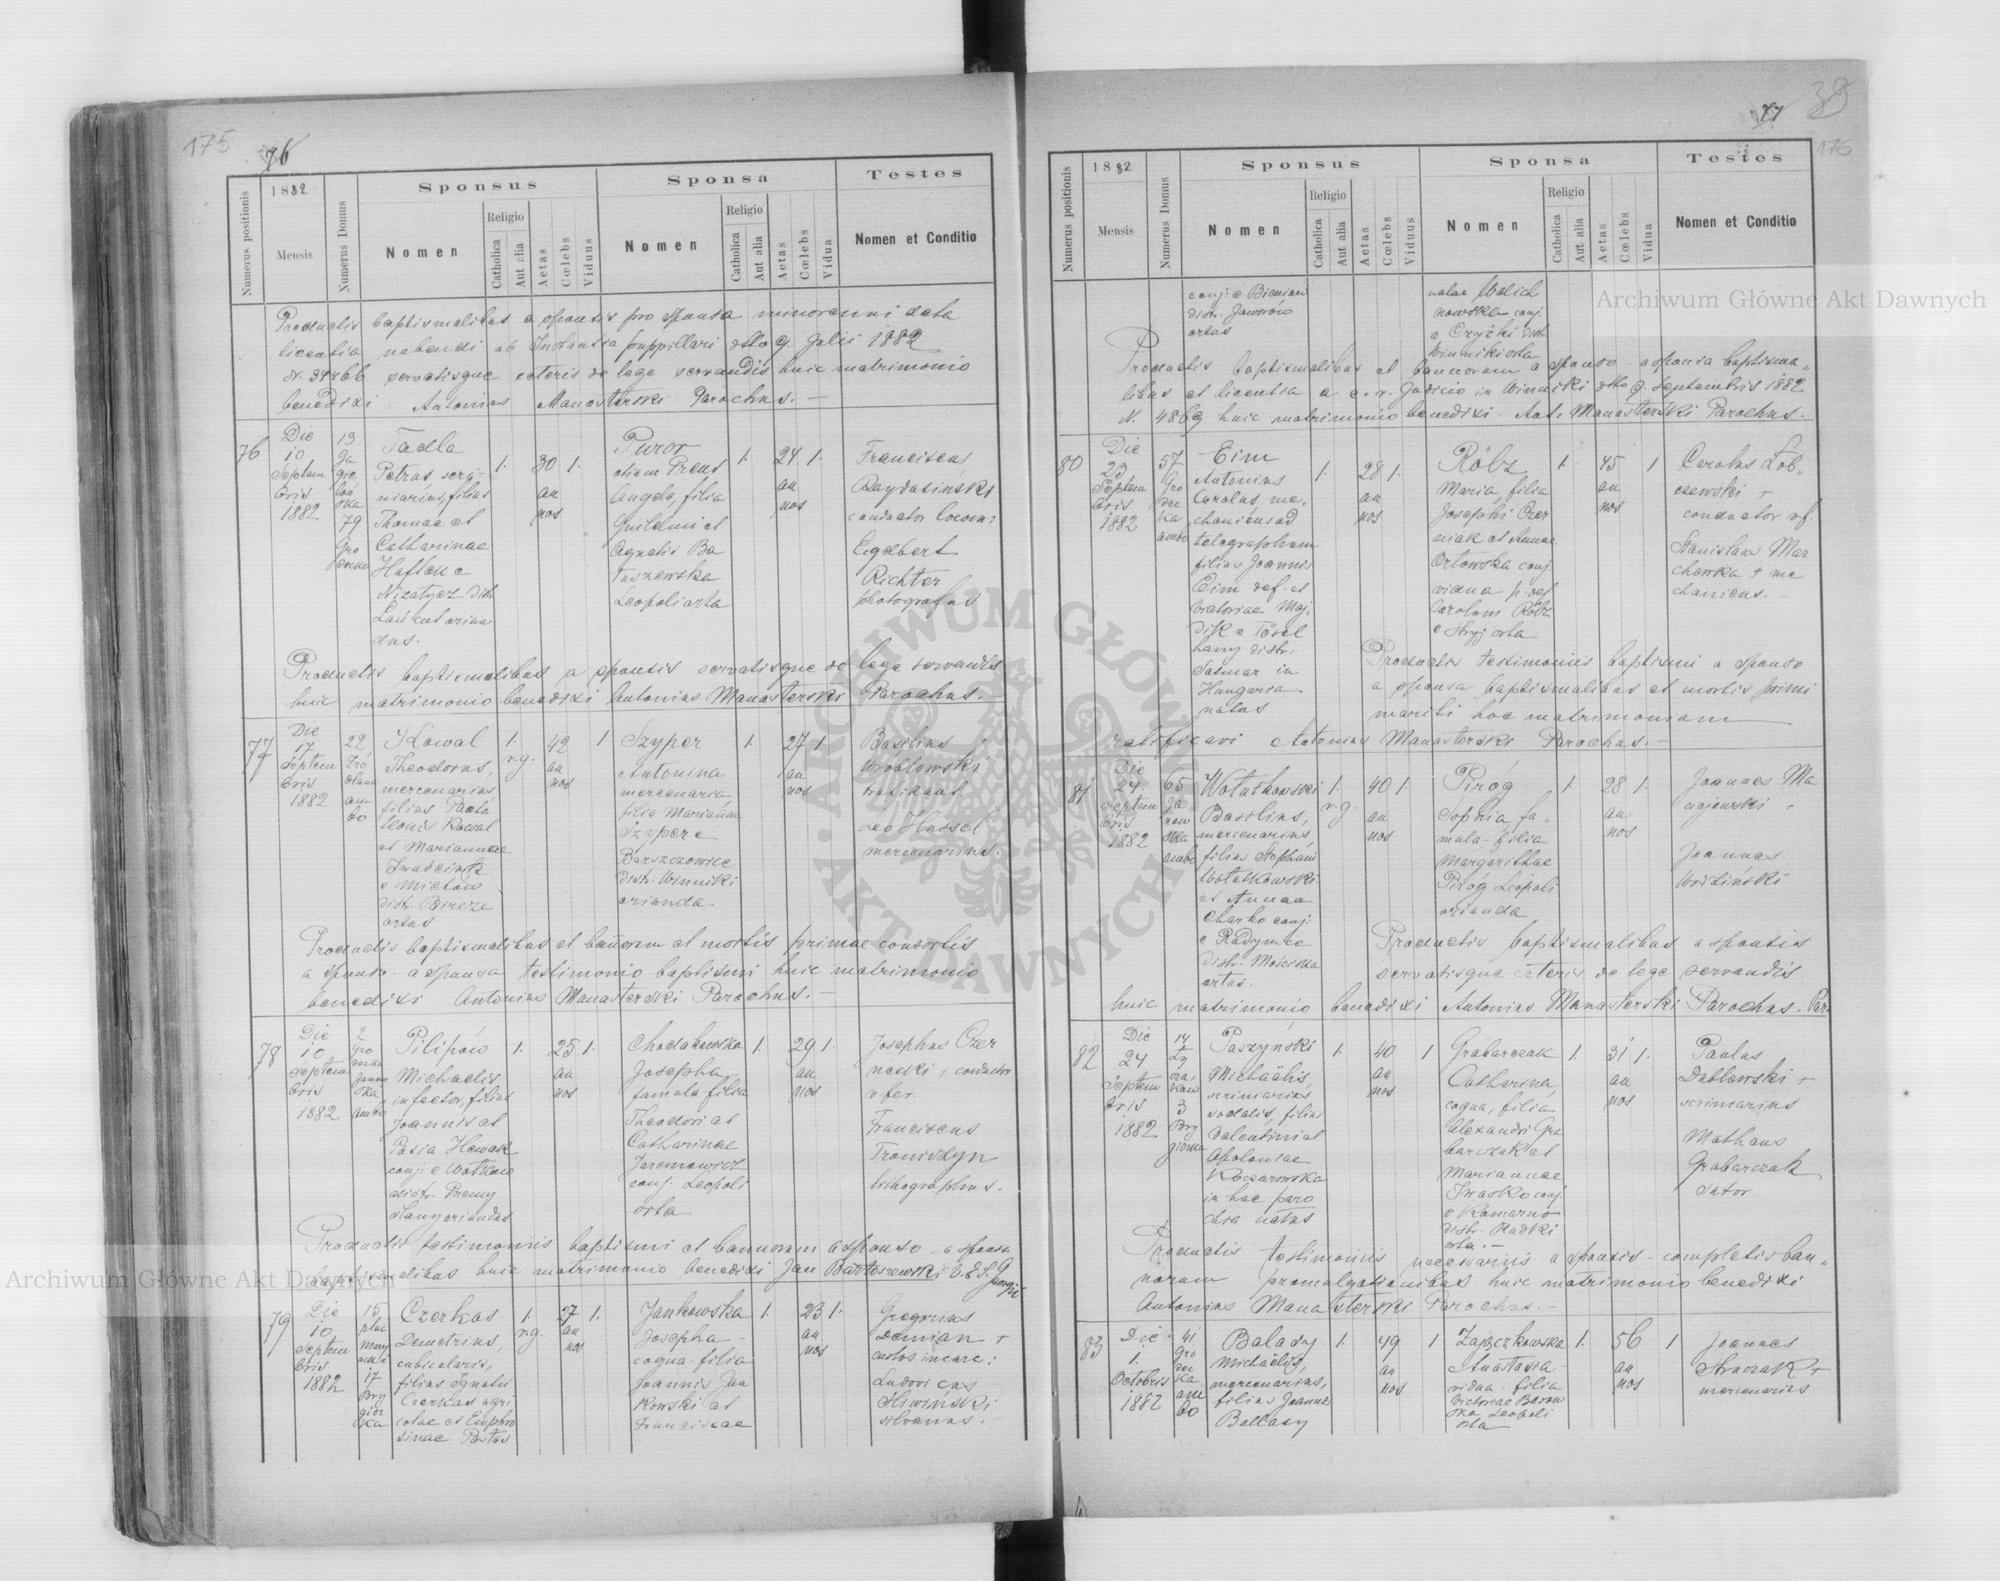 175
76
1882
Numerus positionis
Mensis
Numerus Domus
Sponsus
Nomen
Religio
Catholica
Aut alia
Aetas
Cœlebs
Viduus
Sponsa
Nomen
Religio
Catholica
Aut alia
Aetas
Cœlebs
Vidua
Testes
Nomen et Conditio
Productis baptismalibus a sponsis pro sponsa minorenni data
licentia nubendi ab Instantia puppillari dtto 9 Julii 1882
N. 31466 servatisque ceteris de lege servandis huic matrimonio
benedixi Antonius Manasterski Parochus. —
76
Die
10
Septem
bris
1882
13
79
Tadla
Petrus,
filius
Thomae et
Catharinae
Haflak e
Nizatycz distr.
Łańcut oriun
dus.
1.
30
an
nos
1.
Puror
etiam Preus
Angela, filia
Guilelmi et
Agnetis Ba
taszewska
Leopoli orta
1.
24
an
nos
1.
Franciscus
Raydasinski
conductor
Egelbert
Richter
photografus
Productis baptismalibus a sponsis servatisque de lege servandis
huic matrimonio benedixi Antonius Manasterski Parochus. —
77
Die
17
Septem
bris
1882
22
am
bo
Kowal
Theodorus,
mercenarius
filius Panta
leonis Kowal
et Mariannae
Iwaścink
e
distr. Bircze
ortus
1.
r.g.
42
an
nos
1
Szyper
Antonina
mercenaria
filia Mariannae
Szyper e
Barszczowice
distr. Winniki
oriunda
1.
27
an
nos
1
Basilius
Wroblowski
trafikant
Leo Hussel
mercenarius.
Productis baptismalibus et bannorum et mortis primae consortis
a sponso - a sponsa testimonio baptismi huic matrimonio
benedixi Antonius Manasterski Parochus. —
78
Die
10
Septem
bris
1882
2
Gro
decka
Janow
ska
ambo
Pilipów
Michaelis
infector, filius
Joannis et
Pasia Hewak
conj: e Wołkow
distr. Przemy
ślany oriundus
1.
25
an
nos
1.
Chodakowska
Josepha
famula filia
Theodori et
Catharinae
Jaremowicz
conj. Leopoli
orta
1.
29
an
nos
1.
Josephus Czer
necki, conductor
v fer.
Franciscus
Troniszyn
lithographus.
Productis testimoniis baptismi et bannorum a sponso - a sponsa
baptismalibus huic matrimonio benedixi Jan Bartoszewski
79
Die
10
Septem
bris
1882
15
plac
17
Bry
gidz
ka
Czerkas
Demetrius,
cubicularis,
filius Ignatii
Czerkas agri
colae et Euphro
sinae
1.
r.g.
27
an
nos
1.
Jankowska
Josepha —
coqua - filia
Joannis Jan
kowski et
Franciscae
1.
23
an
nos
1.
Gregorius
Demian +
custos incarc:
Ludovicus
Śliwiński
silvanus.
39
77
176
1882
Numerus positionis
Mensis
Numerus Domus
Sponsus
Nomen
Religio
Catholica
Aut alia
Aetas
Cœlebs
Viduus
Sponsa
Nomen
Religio
Catholica
Aut alia
Aetas
Cœlebs
Vidua
Testes
Nomen et Conditio
conj: e
distr. Jaworów
ortus
natae Malich
nowska conj.
e Czyżki distr.
Winniki orta
Productis baptismalibus et bannorum a sponso - a sponsa baptisma„
libus et licentia a c.r. Judicio in Winniki dtto 9. Septembris 1882
N. 4869 huic matrimonio benedixi. Ant. Manasterski Parochus. —
80
Die
23
Septem
bris
1882
57
Gro
dec
ka
ambo
Eim
Antonius
Carolus, me„
chanicus ad
telegraphum
filius Joannis
Eim def. et
Victoriae Maj„
dik e Tösel
hany distr.
Satmar in
Hungaria
natus
1.
28
an
nos
1.
Röbz
Maria, filia
Josephi Czer
niak et Annae
Ortowska conj.
vidua p. def
Carolum Röbz
e Stryj orta
1.
45
an
nos
1
Carolus Łob„
czewski +
conductor v.f.
Stanislaus Mar
chewka + me
chanicus. —
Productis testimoniis baptismi a sponso
a sponsa baptismalibus et mortis primi
mariti hoc matrimonium
ratificavi Antonius Manasterski Parochus. —
81
Die
24
Septem
bris
1882
65
Ja
now
ska
ambo
Wołutkowski
Basilius,
mercenarius,
filius Stephani
Wołutkowski
et Annae
Charko conj:
e Radymce
distr. Mościska
ortus.
1.
r.g.
40
an
nos
1.
Piróg
Sophia fa„
mula - filia
Margarithae
Piróg Leopoli
oriunda
1.
28
an
nos
1.
Joannes Ma
ciejewski +
Joannes
Productis baptismalibus a sponsis
servatisque ceteris de lege servandis
huic matrimonio benedixi Antonius Manasterski Parochus.
82
Die
24
Septem
bris
1882
14
Ły
cza„
kow
3
Bry
gidzka
Paszyński
Michaëlis,
scriniarius
sodalis, filius
Valentini et
Apoloniae
Koczarowska
in hac paro
chia natus
1.
40
an
nos
1
Grabarczak
Catharina,
coqua, filia
Alexandri Gra
barczak et
Mariannae
Iwasko conj.
e Komarno
distr. Rudki
orta. —
1.
31
an
nos
1.
Paulus
Dublowski +
scriniarius
Matheus
Grabarczak
sutor
Productis testimoniis necessariis a sponsis - completis ban„
norum promulgationibus huic matrimonio benedixi
Antonius Manasterski Parochus. —
83
Die
1.
Octobris
1882
41
Gro
dec
ka
am
bo
Balady
Michaëlis,
mercenarius,
filius Joannis
Ballady
1.
49
an
nos
1
Zajączkowska
Anastasia
vidua - filia
Victoriae Baran
ska Leopoli
orta
1.
56
an
nos
1
Joannes
Straczak +
mercenarius
Archiwum Główne Akt Dawnych
Archiwum Główne Akt Dawnych
ARCHIWUM GŁÓWNE AKT DAWNYCH